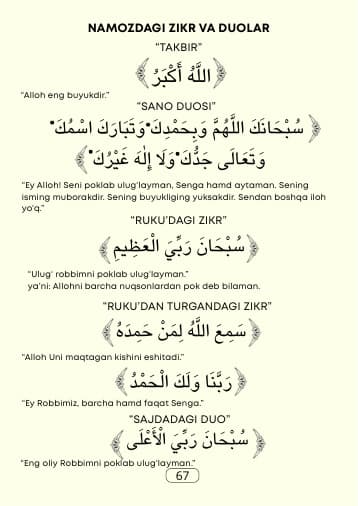 NAMOZDAGI ZIKR VA DUOLAR
“TAKBIR”
﴿اللَّهُ أَكْبَرُ﴾
“Alloh eng buyukdir.”
“SANO DUOSI”
﴿سُبْحَانَكَ اللَّهُمَّ وَبِحَمْدِكَ وَتَبَارَكَ اسْمُكَ
وَتَعَالَى جَدُّكَ وَلَا إِلٰهَ غَيْرُكَ﴾
“Ey Alloh! Seni poklab ulug‘layman, Senga hamd aytaman. Sening
isming muborakdir. Sening buyukliging yuksakdir. Sendan boshqa iloh
yo‘q.”
“RUKU’DAGI ZIKR”
﴿سُبْحَانَ رَبِّيَ الْعَظِيمِ﴾
“Ulug‘ robbimni poklab ulug‘layman.”
ya’ni: Allohni barcha nuqsonlardan pok deb bilaman.
“RUKU’DAN TURGANDAGI ZIKR”
﴿سَمِعَ اللَّهُ لِمَنْ حَمِدَهُ﴾
“Alloh Uni maqtagan kishini eshitadi.”
﴿رَبَّنَا وَلَكَ الْحَمْدُ﴾
“Ey Robbimiz, barcha hamd faqat Senga.”
“SAJDADAGI DUO”
﴿سُبْحَانَ رَبِّيَ الْأَعْلَى﴾
“Eng oliy Robbimni poklab ulug‘layman.”
67